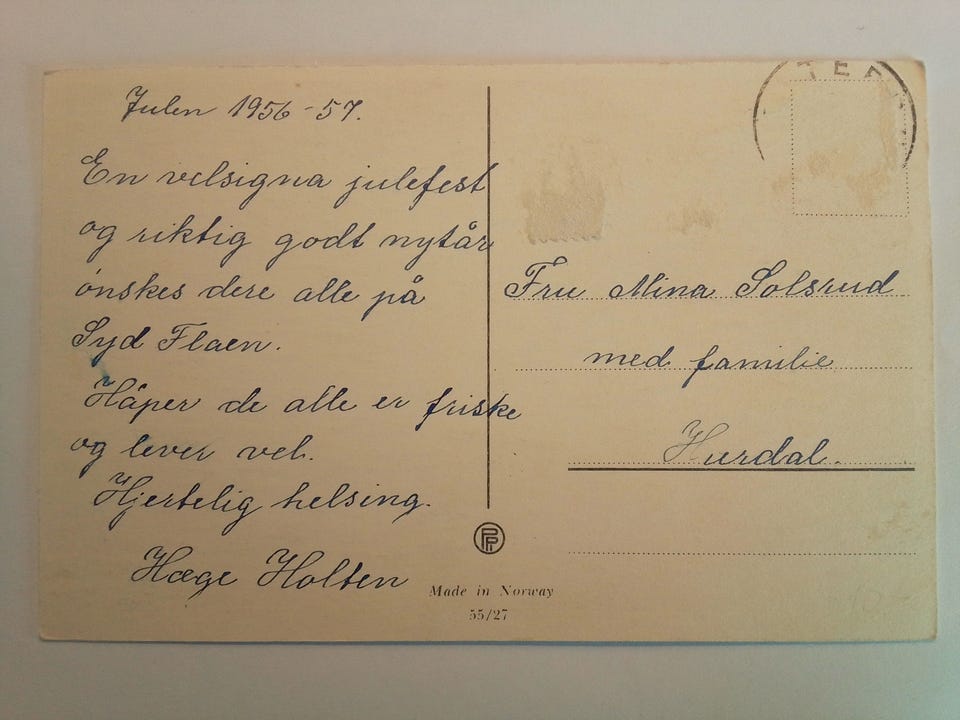 Julen 1956-57.
En velsigna julefest
og riktig godt nytår
ønskes dere alle på
Syd Flaen.
Håper de alle er friske
og lever vel.
Hjertelig helsing.
Hæge Holten
Fru Mina Solsrud
med familie
Hurdal.
Made in Norway
55/27